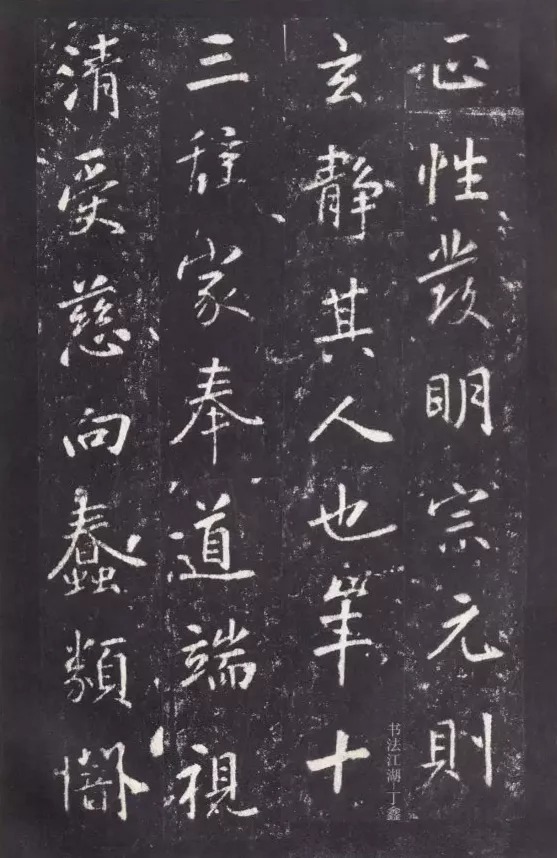 正性發明宗元則
玄静其人也年十
三辭家奉道端視
清受慈向蠢類
书法江湖 丁鑫